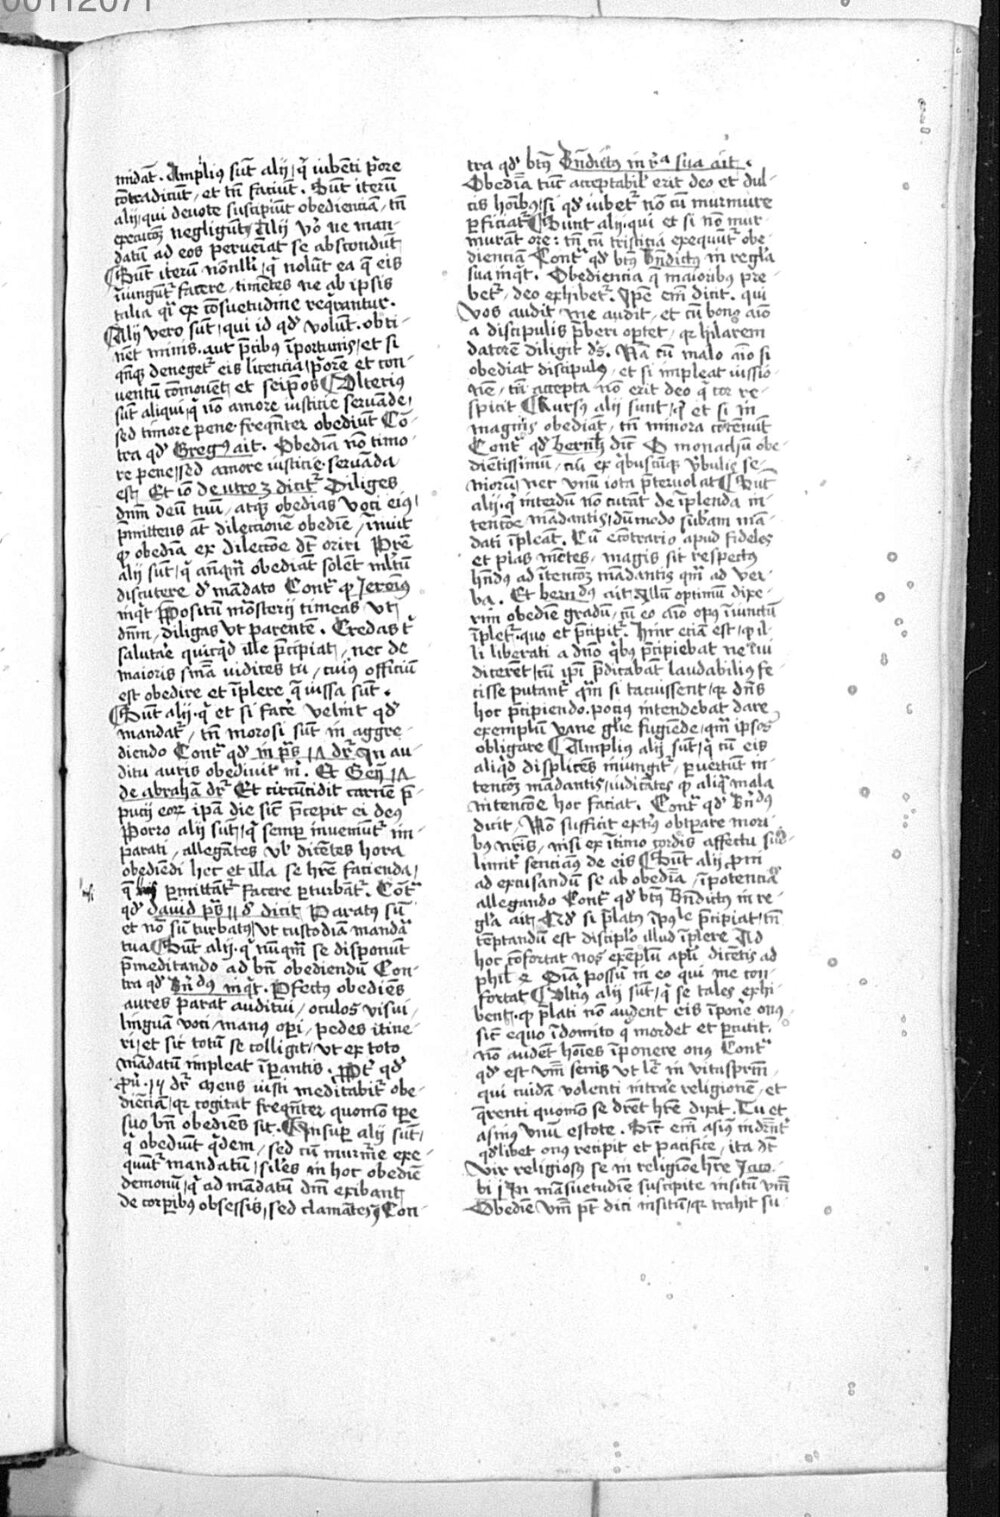 00112071
midāt. Amplius sūt alij, q̄ iubēti p̄ore
cōtradicūt, et tn̄ faciūt. Sūt iterū
alij, qui deuote suscipiūt obedienciam, tn̄
negligunt. Alij v̊o ne man-
datū ad eos perueniat se abscondūt
Sūt iterū nōnulli, q̄ nolūt ea q̄ eis
iniungūt᷑ facere, timētes ne ab ipsis
talia q̄i ex cōsuetudine reqrantur.
Alij vero sūt, qui id qd̓ volūt. obti-
nēt minis. aut p̄cibus īportunis, et si
denegēt᷑ eis licencia, p̄ore et con-
uentū cōmouent, et seip̄os Alterius
sūt aliqui, q̄ nō amore iusticie seruāde,
sed timore pene freqn̄ter obediūt Cō-
tra qd̓ Greg̓ ait. Obediā nō timo-
re pene, sed amore iusticie seruāda
est, Et iō deutroꝫ dicit᷑ Diliges
dn̄m deū tuū, atqꝫ obedias voci eius,
p̄mittens āt dilectionē obediē, īnuit
ꝙ obediā ex dilectōe dꝫ oriri Prē
alij sūt, q̄ anq̄m obediāt solēt ml̓tū
discutere d̓ mādato Contᵃ ꝙ Jeronius
inqt Ppositū mōsterij timeas, vt
dn̄m, diligas vt parentē. Credas t̓
salutare quicqd ille p̄cipiat, nec de
maioris sn̄ia iudices tu, cuius officiū
est obedire et īplere q̄ iussa sūt.
Sūt alij. q̄ et si facē velint qd̓
mandat᷑, tn̄ morosi sūt in aggre-
diendo Contᵃ qd̓ in p̄s dr̄ In au-
ditu auris obediuit m̓. Et Gen̄
de abrahā dr̄ Et circūcidit carnē p̄-
pucij eoꝝ ipā die sic̄ p̄cepit ei deus
Porro alij sūt, q̄ semp̄ inueniūt᷑ im-
parati, allegātes vl̓ dicētes hora
obediēdi hec et illa se hr̄e facienda,
q̄ p̄mittāt᷑ facere perturbāt᷑. Cōtᵃ
qd̓ dauid p̄s dicit Paratus sū
et nō sū turbatus, vt custodiā mandata
tua Sūt alij. q̄ nūqm̄ se disponūt
p̄meditando ad bn̄ obediendū Con-
tra qd̓ Bn̄dus inqt. Pfectus obediēs
aures parat auditui, oculos visui,
linguā voci manus op̄i, pedes itine-
ri, et sic totū se colligit, vt ex toto
mādatū impleat īperantis. Ppt᷑ qd̓
dr̄ Mens iusti meditabit᷑ obe-
dienciā, qr cogitat freqn̄ter quomō tp̄e
suo bn̄ obediēs sit. Insup alij sūt,
q̄ obediūt qdem, sed cū murmūe exe-
quūt᷑ mandatū, siles in hoc obediē
demonū, q̄ ad mādatū dn̄i exibant
de corpibus obsessis, sed clamātes, Con-
tra qd̓ btūs Bn̄dictus in rᵃ sua ait.
Obediā tunc acceptabil̓ erit deo et dul-
cis hoībus, si qd̓ iubet᷑ nō cū murmure
perficiat᷑ Sunt alij, qui et si nō mur-
murāt ore: tn̄ cū tristicia exequūt᷑ obe-
dienciā Contᵃ qd̓ btūs Bn̄dictus in regl̓a
sua inqt. Obediencia q̄ maioribus pre-
bet᷑, deo exhibet᷑. Ipē em̄ dicit. qui
vos audit, me audit, et cū bono aīo
a discipulis p̄beri optet, qr hilarem
datorē diligit ds̄. Nā cū malo aīo si
obediat discipulus, et si impleat iussio-
nē, tn̄ accepta nō erit deo q̄ cor re-
spicit Rursus alij sunt, q̄ et si in
magnis obediāt, tn̄ minora cōtēnūt
Contᵃ qd̓ bernh̄ dn̄t O monachū obe-
dientissimū, cui ex qbuscūqꝫ v̓bulis se-
niorū, nec vnū iota p̄teruolat Sūt
alij. q̄ interdū nō curāt de īplenda in-
tencōe mādantis, dūmodo subam mā-
dati īpleāt. Cū ecōtrario apud fideles
et pias mētes, magis sit respectus
hn̄dus ad ītencōem mādantis qm̄ ad ver-
ba. Et bern̄dus ait, Illū optimū dixe-
rim obediē gradū, cū eo aīo opus iniunctū
īplet᷑, quo et p̄cipit᷑. Hinc etiā est, ꝙ il-
li liberati a dn̄o qbus p̄cipiebat ne cui
dicerēt, cū ipi p̄dicabāt laudabilius fe-
cisse putant᷑ qm̄ si tacuissent, qr dn̄s
hoc p̄cipiendo. pocius intendebat dare
exemplū vane gl̓ie fugiēde, qm̄ ipsos
obligare Amplius alij sūt, q̄ cū eis
aliqd displicēs iniungit᷑, puertūt in-
tencōem mādantis, iudicātes ꝙ aliqᵃ mala
intencōe hoc faciat. Contᵃ qd̓ Bn̄dus
dicit, Nō sufficit ext̓us obtp̄are mori-
bus nr̄is, nisi ex ītimo cordis affectu sub-
limit̓ senciāus de eis Sūt alij, ꝙ in
ad excusandū se ab obediā, īpotenciā
allegando Contᵃ qd̓ btūs Bn̄dictus in re-
gl̓a ait, Et si p̄latus īpole p̄cipiat, tn̄
tēptandū est discipl̓o illud īplere Ad
hoc cōfortat nos exēplū apl̓i dicētis ad
phil̓ 4 Oīa possū in eo qui me con-
fortat Ult̓ius alij sūt, q̄ se tales exhi-
bent, ꝙ p̄lati nō audent eis īpone onus,
sic̄ equo īdomito q̄ mordet et pcutit,
nō audēt hoīes īponere onus Contᵃ
qd̓ est vnū senis vt lr̄ in vitaspatrū,
qui cuidā volenti intrare religionē, et
q̄renti quomō se drēt hr̄e dixit. Tu et
asinus vnū estote. Sic̄ em̄ asinus
qd̓libet onus recipit et pacifice, ita dꝫ
vir religiosus se in religiōe hr̄e Jaco-
bi j In māsuetudine suscipite insitū vm̄
Obediē vm̄ pt̄ dici insitū, qr trahit su-